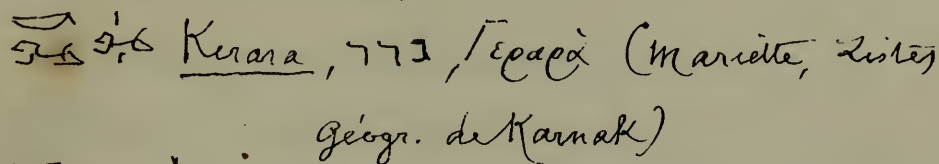 Kerara, גרר, Γεραρὰ (Mariette, Listes
Géogr. de Karnak)